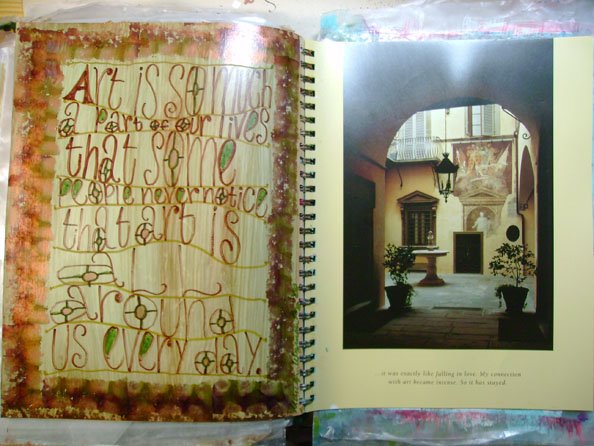 Art is so much
a part of our lives
that some
people never notice
that art is
all
around
us every day.
. . . it was exactly like falling in love. My connection
with art became intense. So it has stayed.